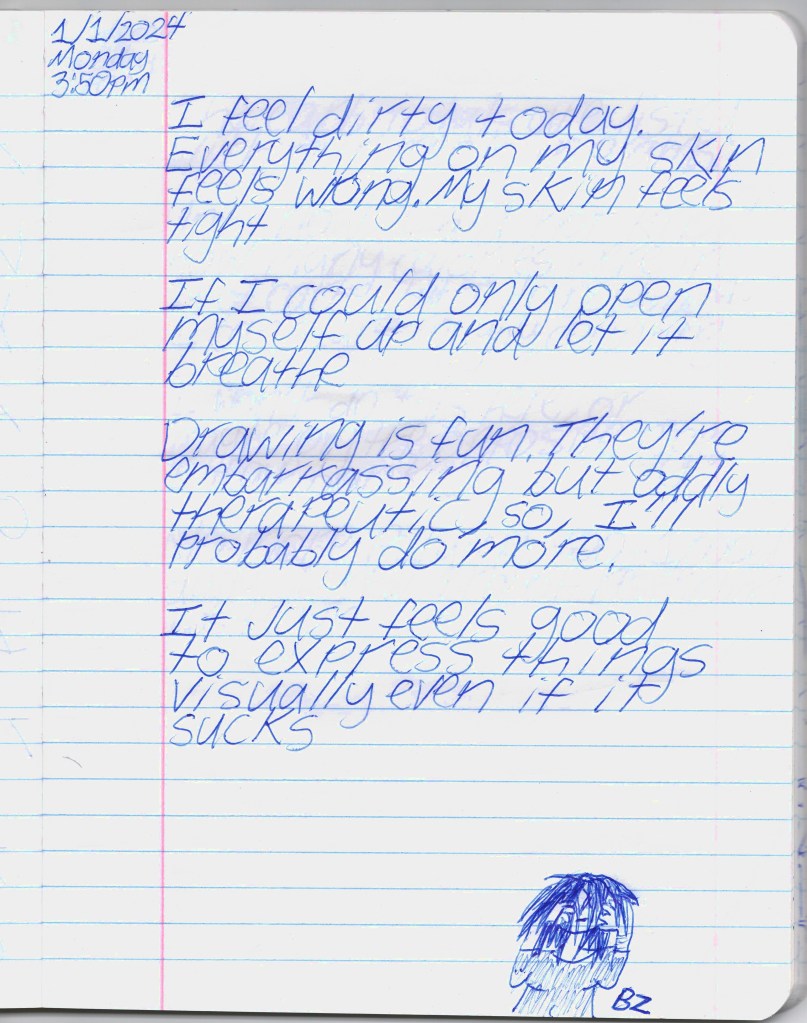 1/1/2024
Monday
3:50pm
I feel dirty today.
Everything on my skin
feels wrong. My skin feels
tight
If I could only open
myself up and let it
breathe
Drawing is fun. They're
embarrassing but oddly
therapeutic, so, I'll
probably do more.
It just feels good
to express things
visually even if it
sucks
BZ